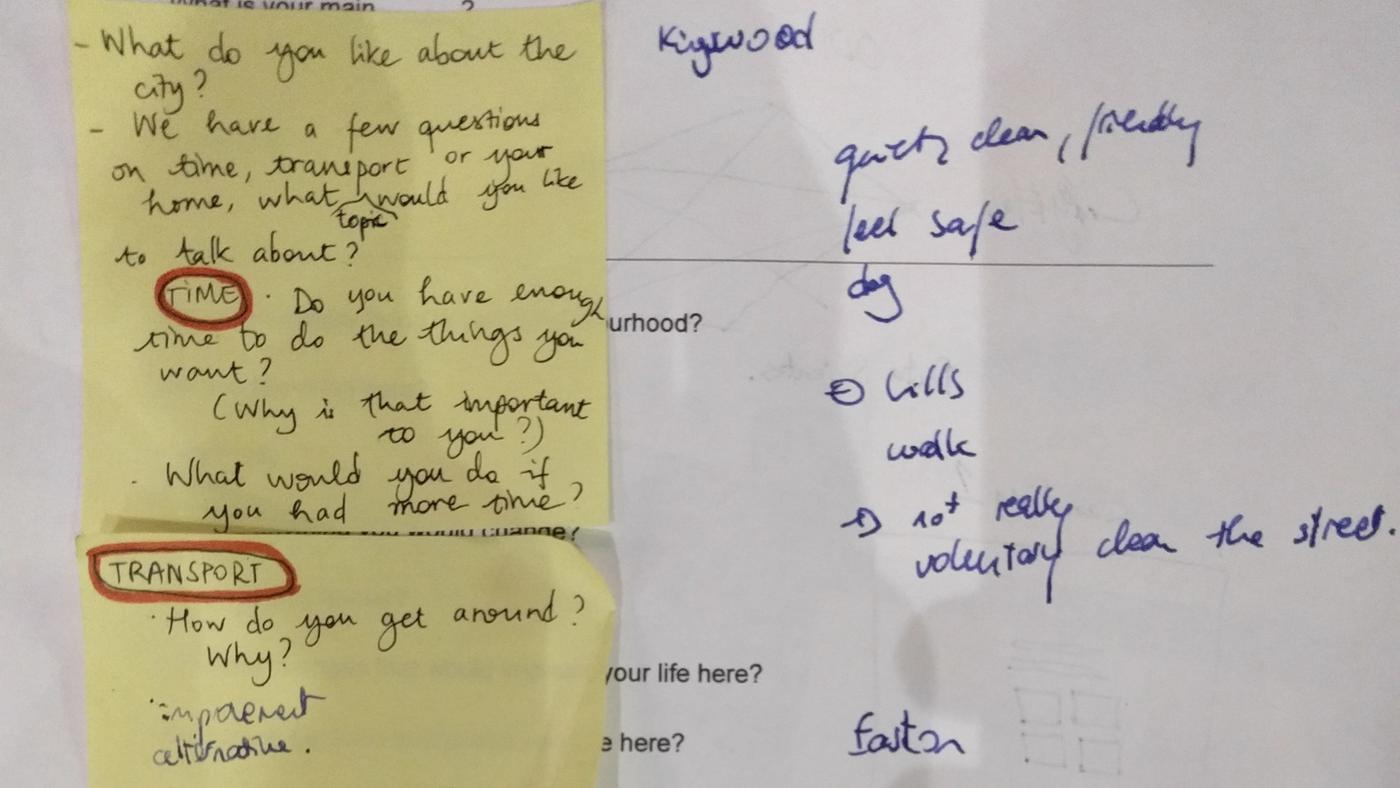 What is your main ?
- What do you like about the
city?
- We have a few questions
on time, transport or your
home, what would you like
topic
to talk about?
TIME · Do you have enough
time to do the things you
want?
(Why is that important
to you?)
· What would you do if
you had more time?
you would change?
TRANSPORT
· How do you get around?
Why?
alternative.
urhood?
your life here?
e here?
clean, friendly
feel safe
dog
hills
walk
not really
voluntary clean the street.